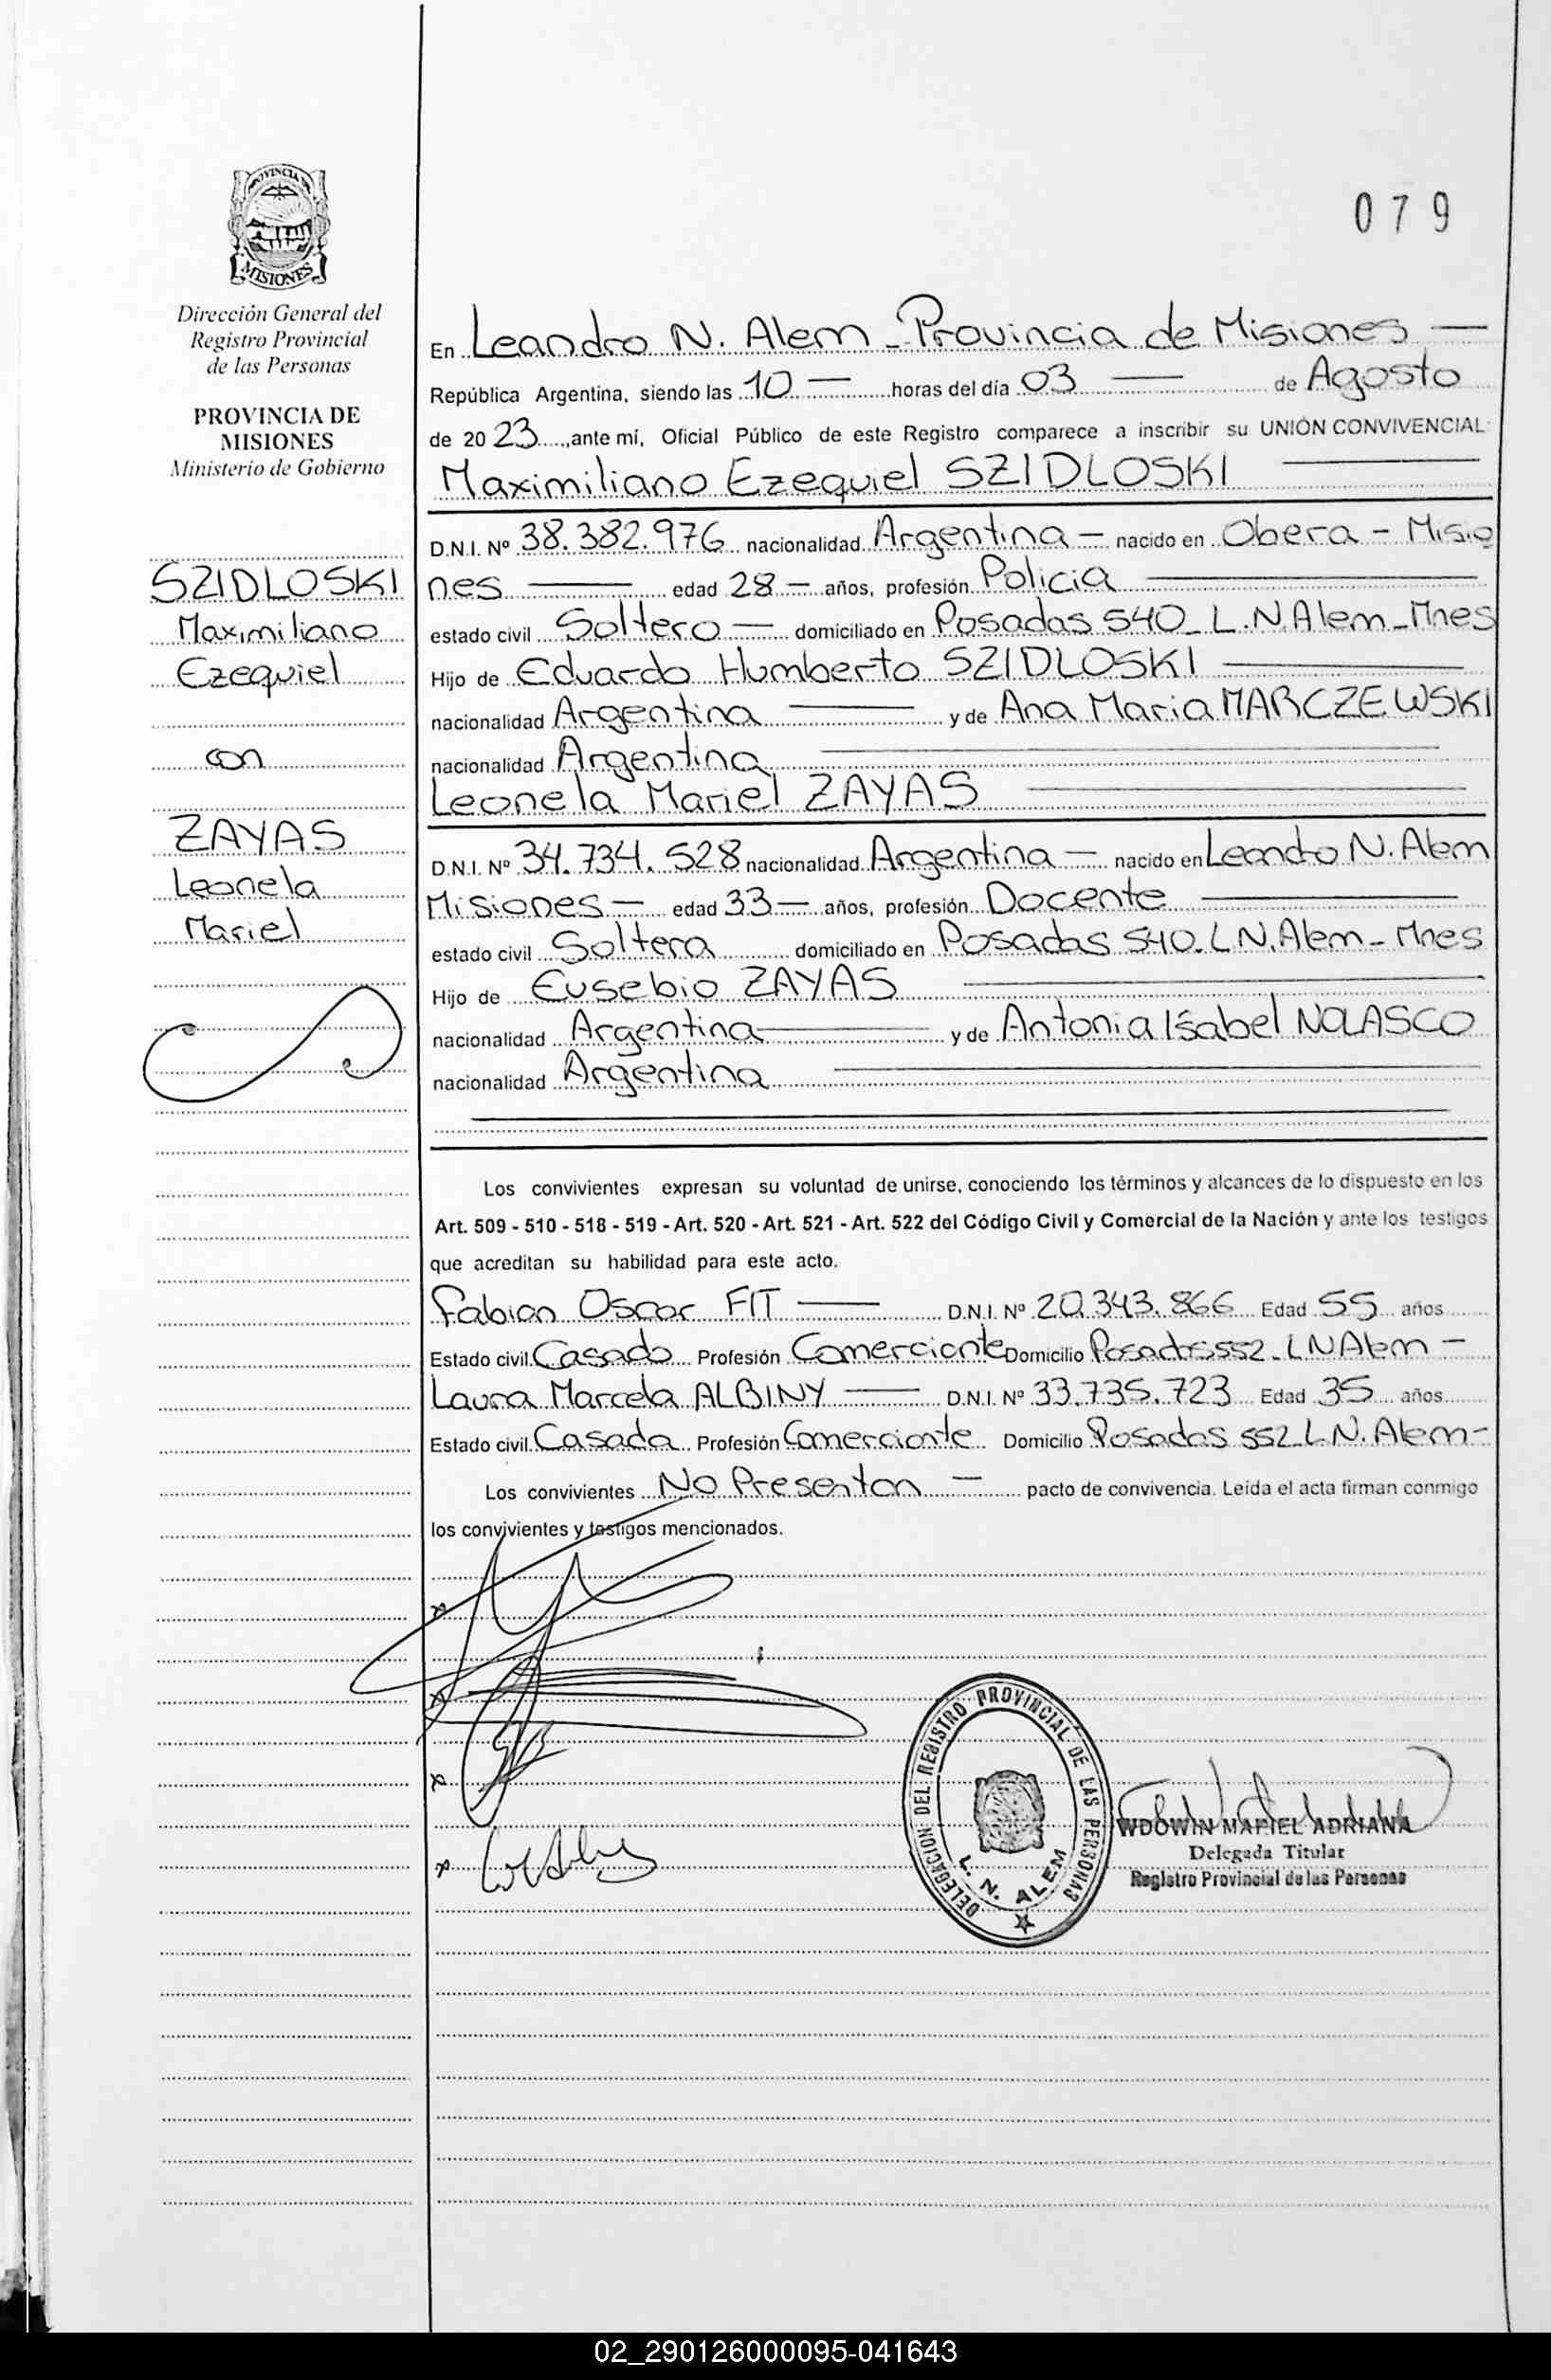 PROVINCIA DE
MISIONES
079
Dirección General del
Registro Provincial
de las Personas
PROVINCIA DE
MISIONES
Ministerio de Gobierno
SZIDLOSKI
Maximiliano
Ezequiel
con
ZAYAS
Leonela
Mariel
En Leandro N. Alem - Provincia de Misiones —
República Argentina, siendo las 10 — horas del día 03 — de Agosto
de 2023, ante mí, Oficial Público de este Registro comparece a inscribir su UNIÓN CONVIVENCIAL:
Maximiliano Ezequiel SZIDLOSKI —
D.N.I. Nº 38.382.976 nacionalidad Argentina — nacido en Obera - Misio
nes — edad 28 — años, profesión Policia —
estado civil Soltero — domiciliado en Posadas 540_ L.N.Alem_Mnes
Hijo de Eduardo Humberto SZIDLOSKI —
nacionalidad Argentina — y de Ana Maria MARCZEWSKI
nacionalidad Argentina —
Leonela Mariel ZAYAS —
D.N.I. Nº 34.734.528 nacionalidad Argentina — nacido en Leandro N. Alem
Misiones — edad 33 — años, profesión Docente —
estado civil Soltera domiciliado en Posadas 540_L.N.Alem - Mnes
Hijo de Eusebio ZAYAS —
nacionalidad Argentina — y de Antonia Isabel NOLASCO
nacionalidad Argentina —
Los convivientes expresan su voluntad de unirse, conociendo los términos y alcances de lo dispuesto en los
Art. 509 - 510 - 518 - 519 - Art. 520 - Art. 521 - Art. 522 del Código Civil y Comercial de la Nación y ante los testigos
que acreditan su habilidad para este acto.
Fabian Oscar FIT — D.N.I. Nº 20.343.866 Edad 55 años
Estado civil Casado Profesión Comerciante Domicilio Posadas 552_ L N Alem —
Laura Marcela ALBINY — D.N.I. Nº 33.735.723 Edad 35 años
Estado civil Casada Profesión Comerciante Domicilio Posadas 552_L.N. Alem -
Los convivientes No Presentan — pacto de convivencia. Leída el acta firman conmigo
los convivientes y testigos mencionados.
x
x
x
x
DELEGACION DEL REGISTRO PROVINCIAL DE LAS PERSONAS
L. N. ALEM
WDOWIN MARIEL ADRIANA
Delegada Titular
Registro Provincial de las Personas
02_290126000095-041643